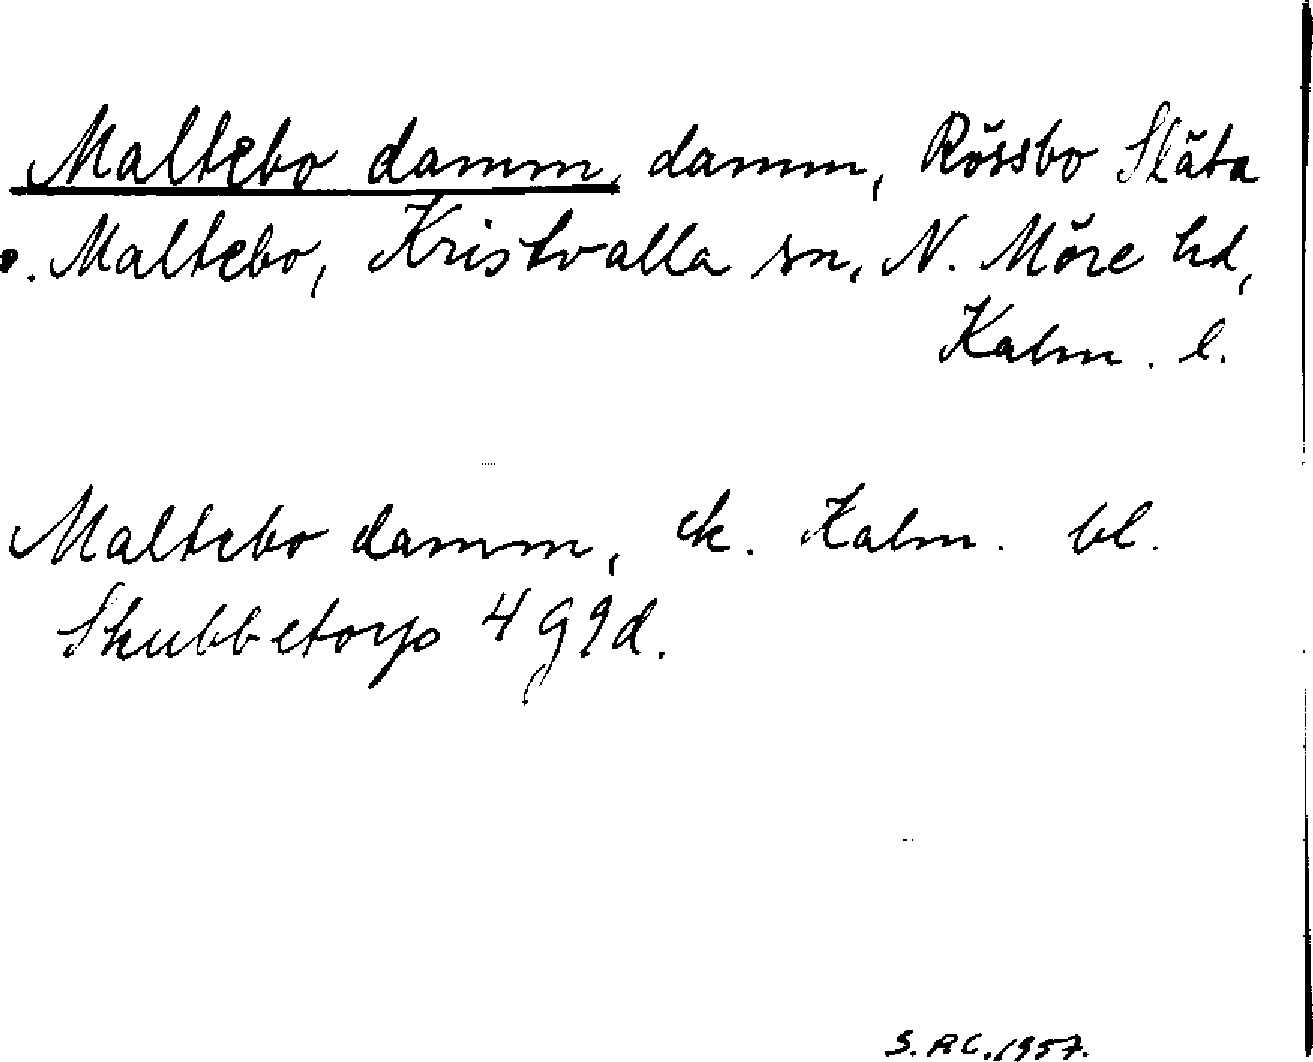 Maltebo damm, damm, Rössbo Släta
o. Maltebo, Kristvalla sn, N. Möre hd,
Kalm. l.
Maltebo damm, ek. Kalm. bl.
Skubbetorp 4 G 9 d.
S. RC, 1957.